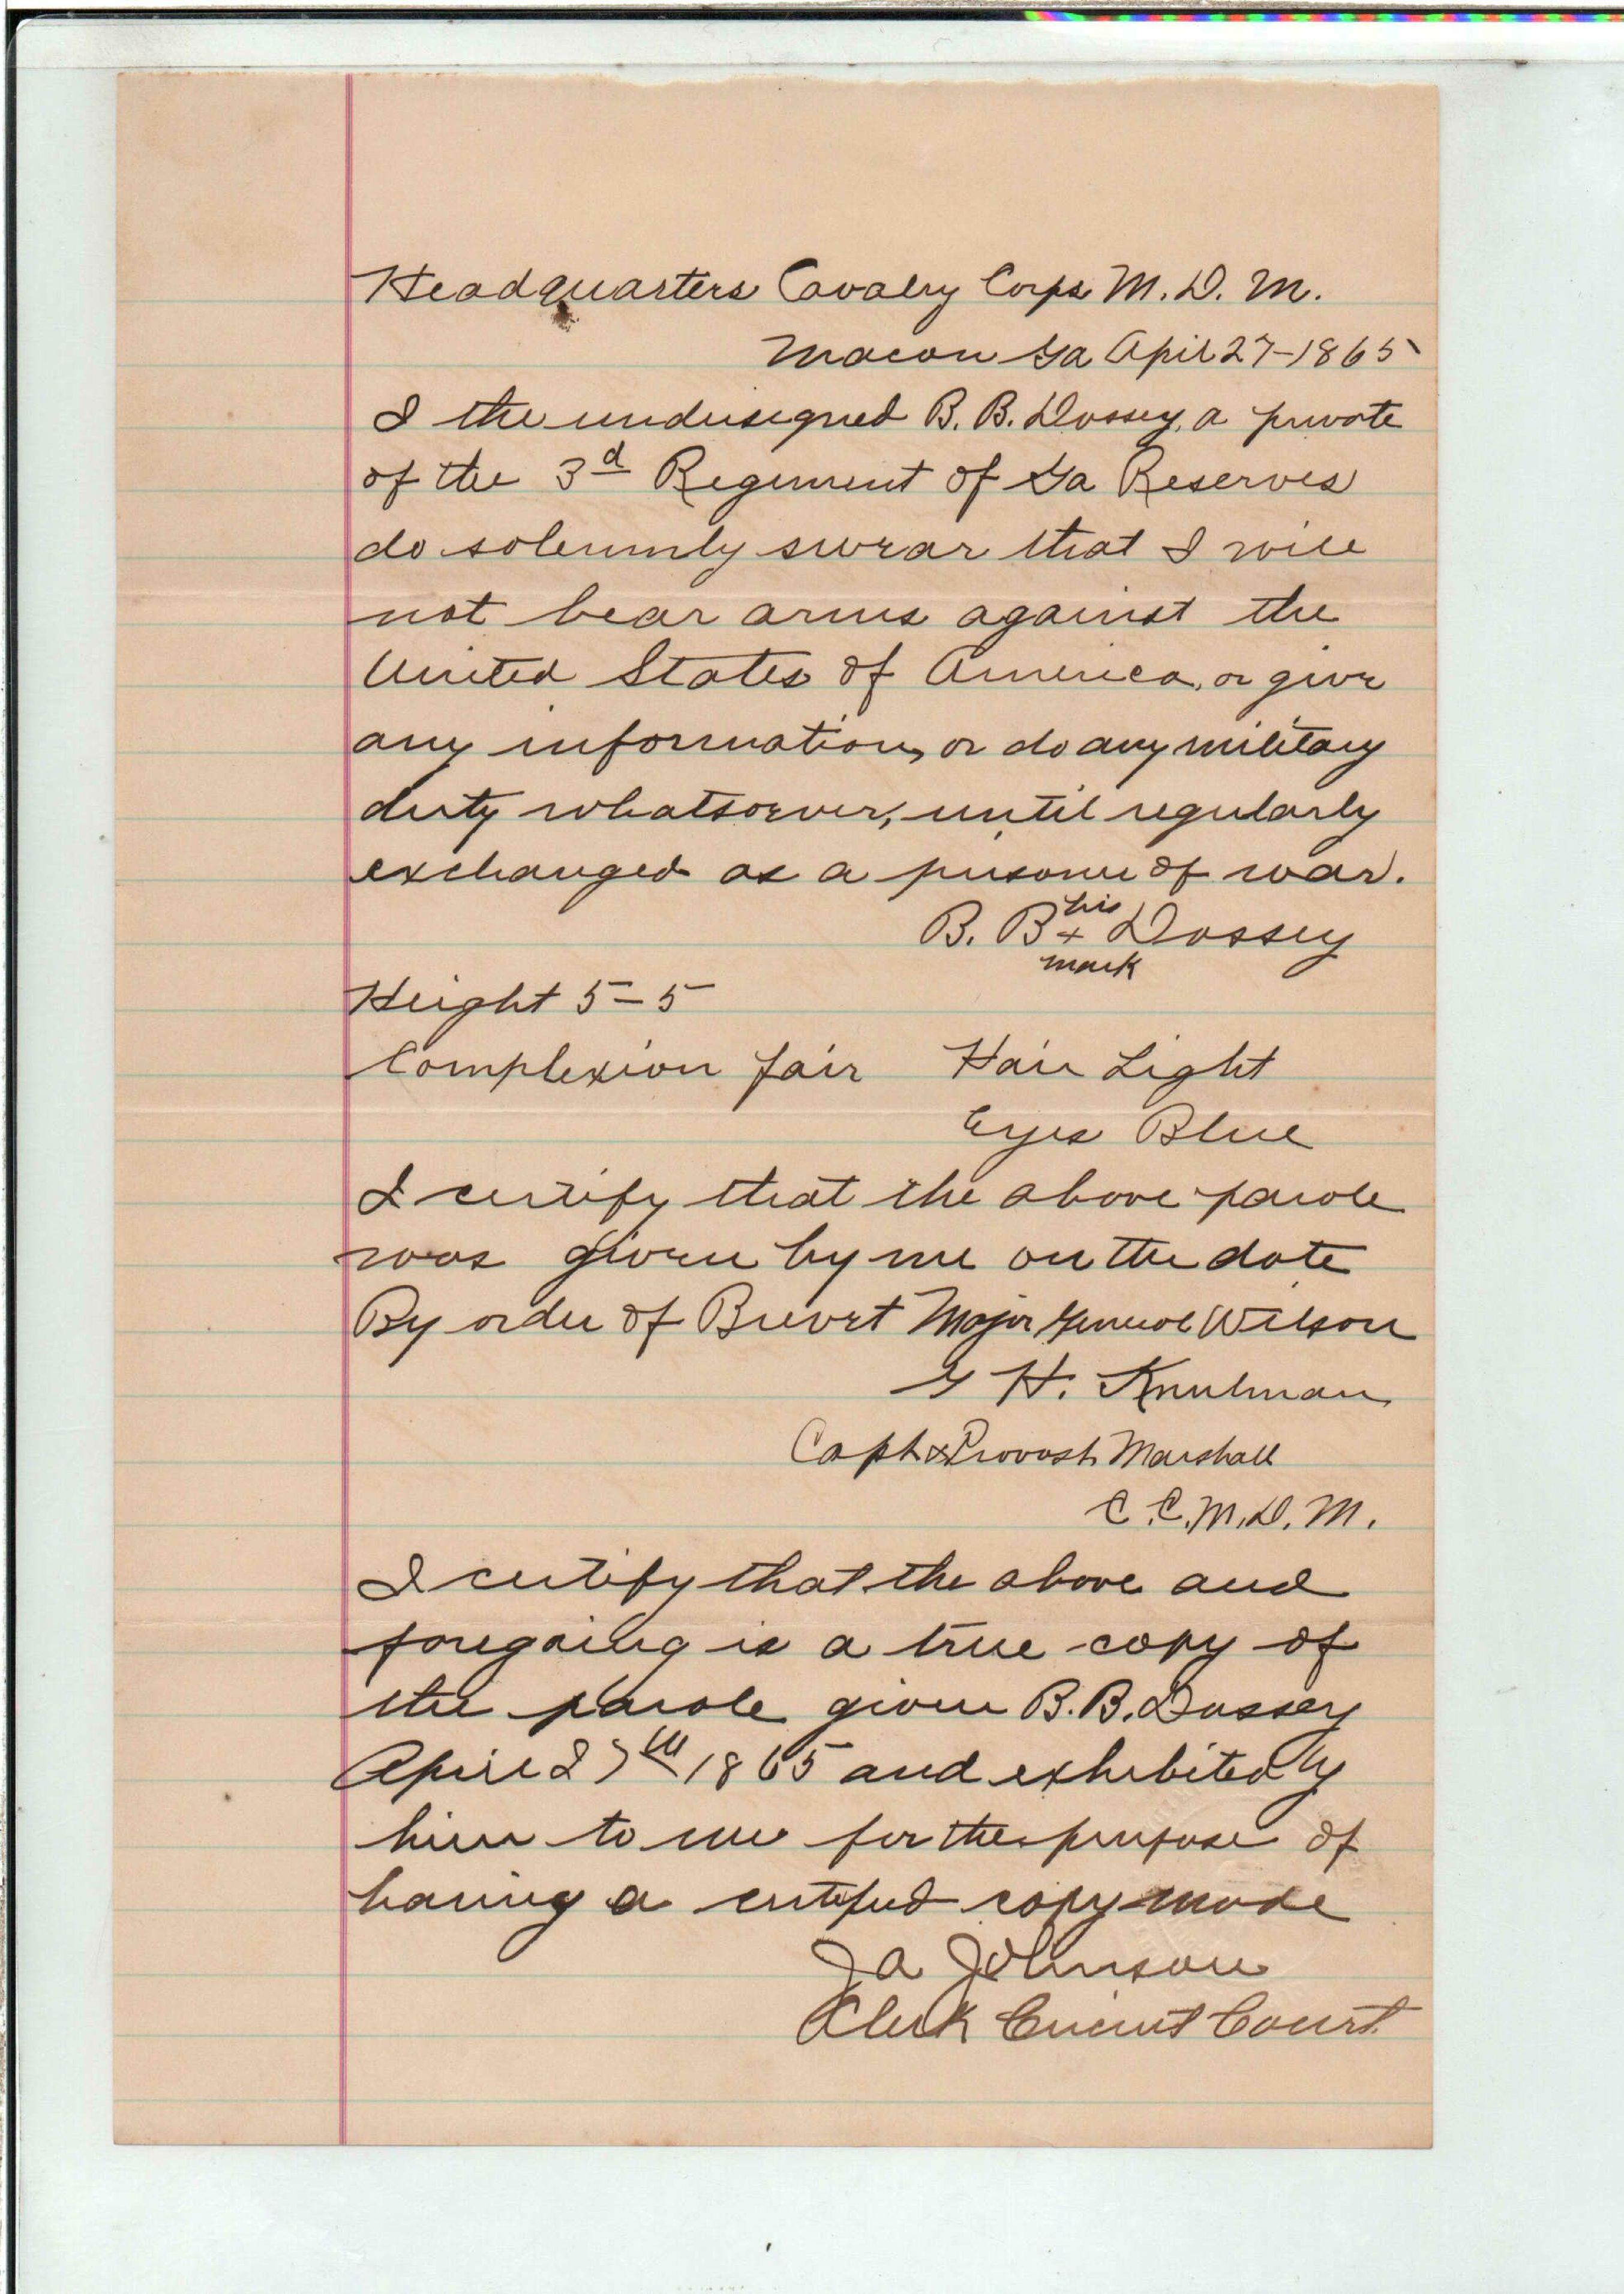 Headquarters Cavalry Corps M. D. M.
Macon Ga April 27-1865
I the undersigned B. B. Dossey, a private
of the 3d Regiment of Ga Reserves
do solemnly swear that I will
not bear arms against the
United States of America, or give
any information, or do any military
duty whatsoever, until regularly
exchanged as a prisoner of war.
his
B. B + Dossey
mark
Height 5-5
Complexion fair Hair Light
Eyes Blue
I certify that the above parole
was given by me on the date
By order of Brevet Major General Wilson
G H. Kneeland
Capt & Provost Marshall
C. C. M. D. M.
I certify that the above and
foregoing is a true copy of
the parole given B. B. Dossey
April 27th 1865 and exhibited by
him to me for the purpose of
having a certified copy made
J A Johnson
Clerk Circuit Court